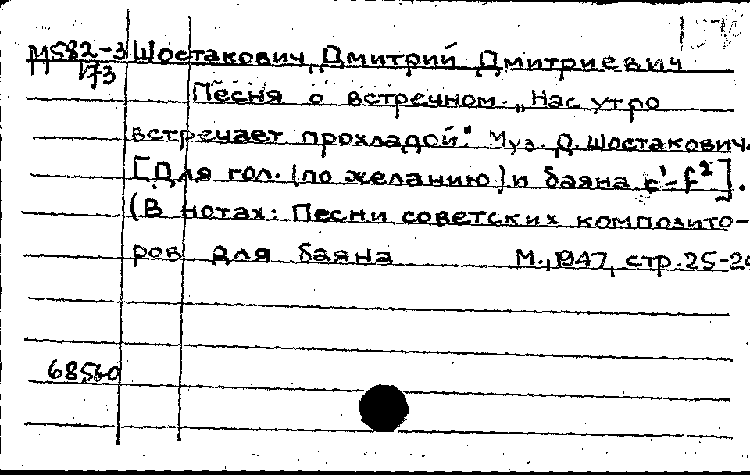 М582-3 Шостакович, Дмитрий Дмитриевич
173
Песня о встречном. „Нас утро
встречает прохладой." Муз. Д. Шостакович.
[Для гол. (по желанию) и баяна c¹-f²].
(В нотах: Песни советских композито-
ров для баяна М., 1947, стр. 25-2
68560